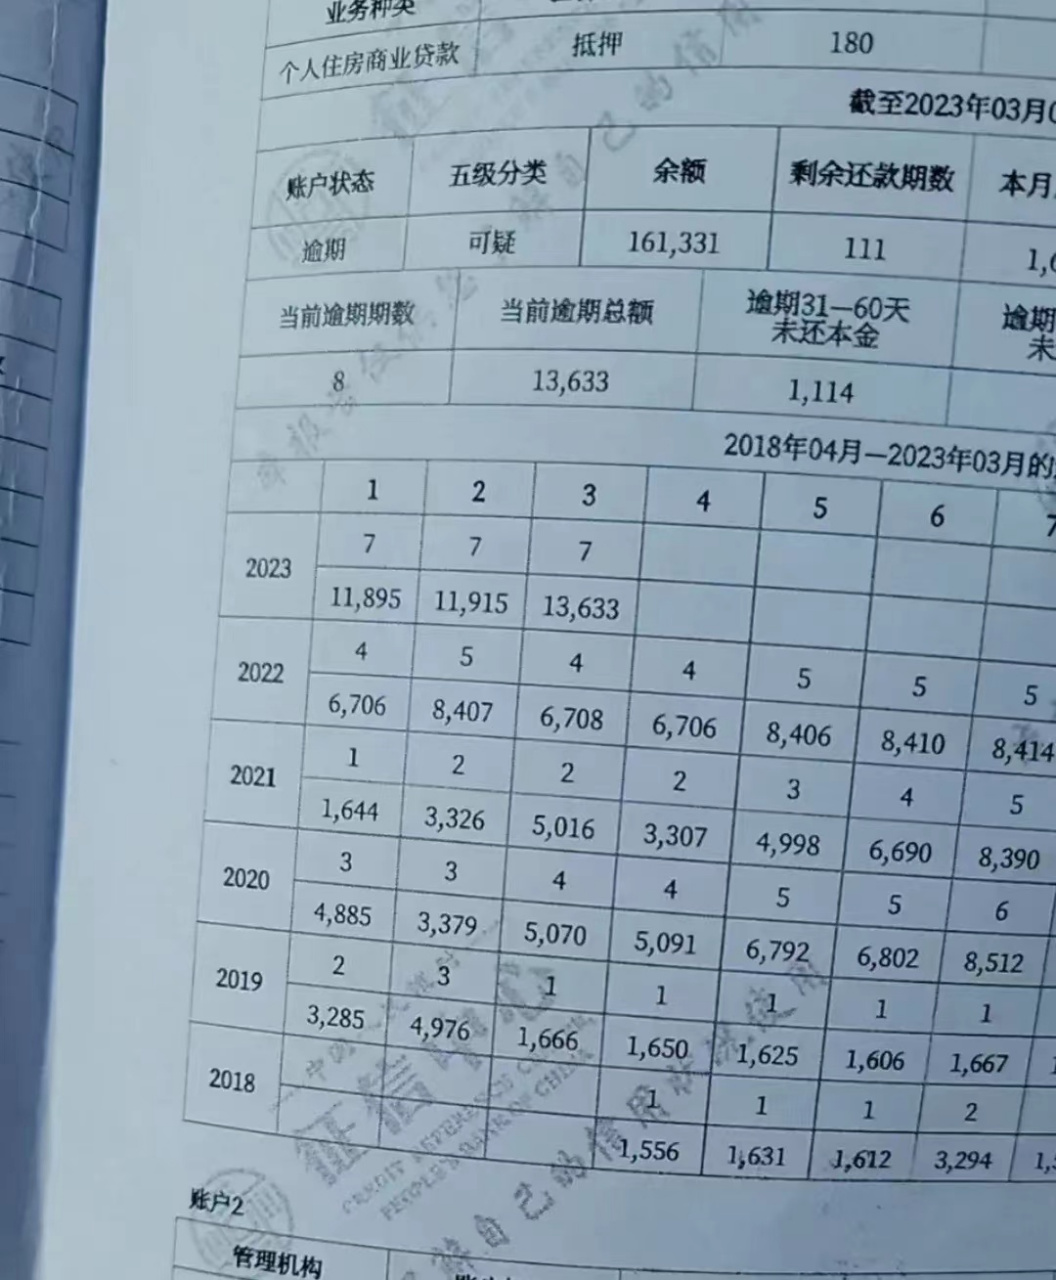 业务种类
个人住房商业贷款 抵押 180
截至2023年03月
账户状态 五级分类 余额 剩余还款期数 本月
逾期 可疑 161,331 111
当前逾期期数 当前逾期总额 逾期31—60天 逾期
未还本金 未
8 13,633 1,114
2018年04月—2023年03月的
1 2 3 4 5 6 7
2023 7 7 7
11,895 11,915 13,633
2022 4 5 4 4 5 5 5
6,706 8,407 6,708 6,706 8,406 8,410 8,414
2021 1 2 2 2 3 4 5
1,644 3,326 5,016 3,307 4,998 6,690 8,390
2020 3 3 4 4 5 5 6
4,885 3,379 5,070 5,091 6,792 6,802 8,512
2019 2 3 1 1 1 1 1
3,285 4,976 1,666 1,650 1,625 1,606 1,667
2018 1 1 1 2
1,556 1,631 1,612 3,294
账户2
管理机构